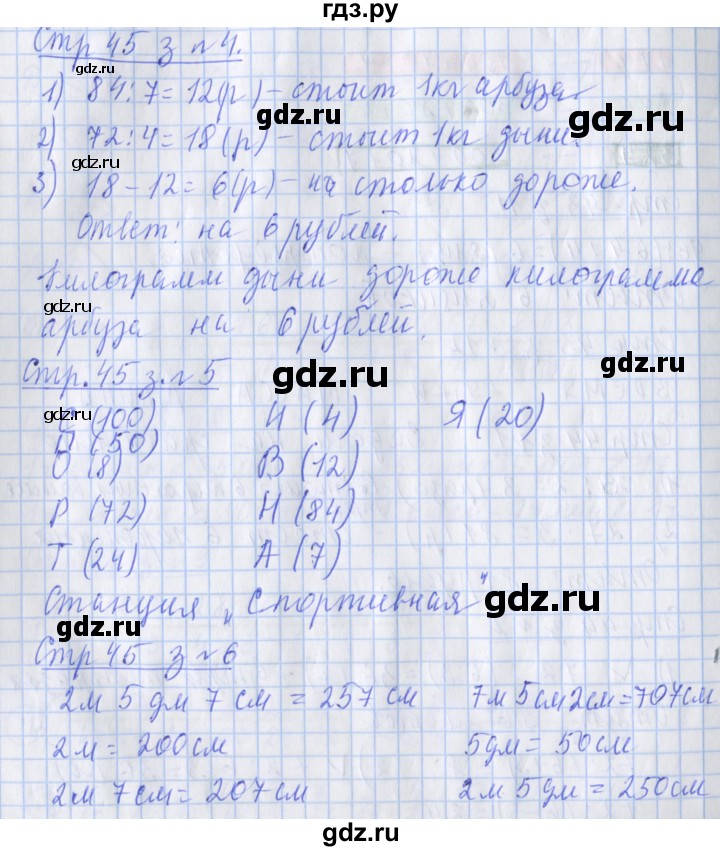 гдз.ру
Стр 45 з № 4.
gdz.ru
1) 84:7=12(р)-стоит 1кг арбуза.
gdz.ru
gdz.ru
2) 72:4=18(р)-стоит 1кг дыни.
gdz.ru
3) 18-12=6(р)-на столько дороже.
Ответ: на 6 рублей.
Килограмм дыни дороже килограмма
gdz.ru
gdz.ru
арбуза на 6 рублей.
gdz.ru
gdz.ru
Стр. 45 з. № 5
gdz.ru
С (100) И (4) Я (20)
П (50)
О (8) В (12)
Р (72) Н (84)
gdz.ru
gdz.ru
Т (24) А (7)
Станция "Спортивная"
gdz.ru
gdz.ru
Стр 45 з № 6
2м 5дм 7см = 257см 7м 5см 2см=707см
2м = 200см 5дм = 50см
gdz.ru
gdz.ru
2м 7см= 207см 2м 5дм = 250см
gdz.ru